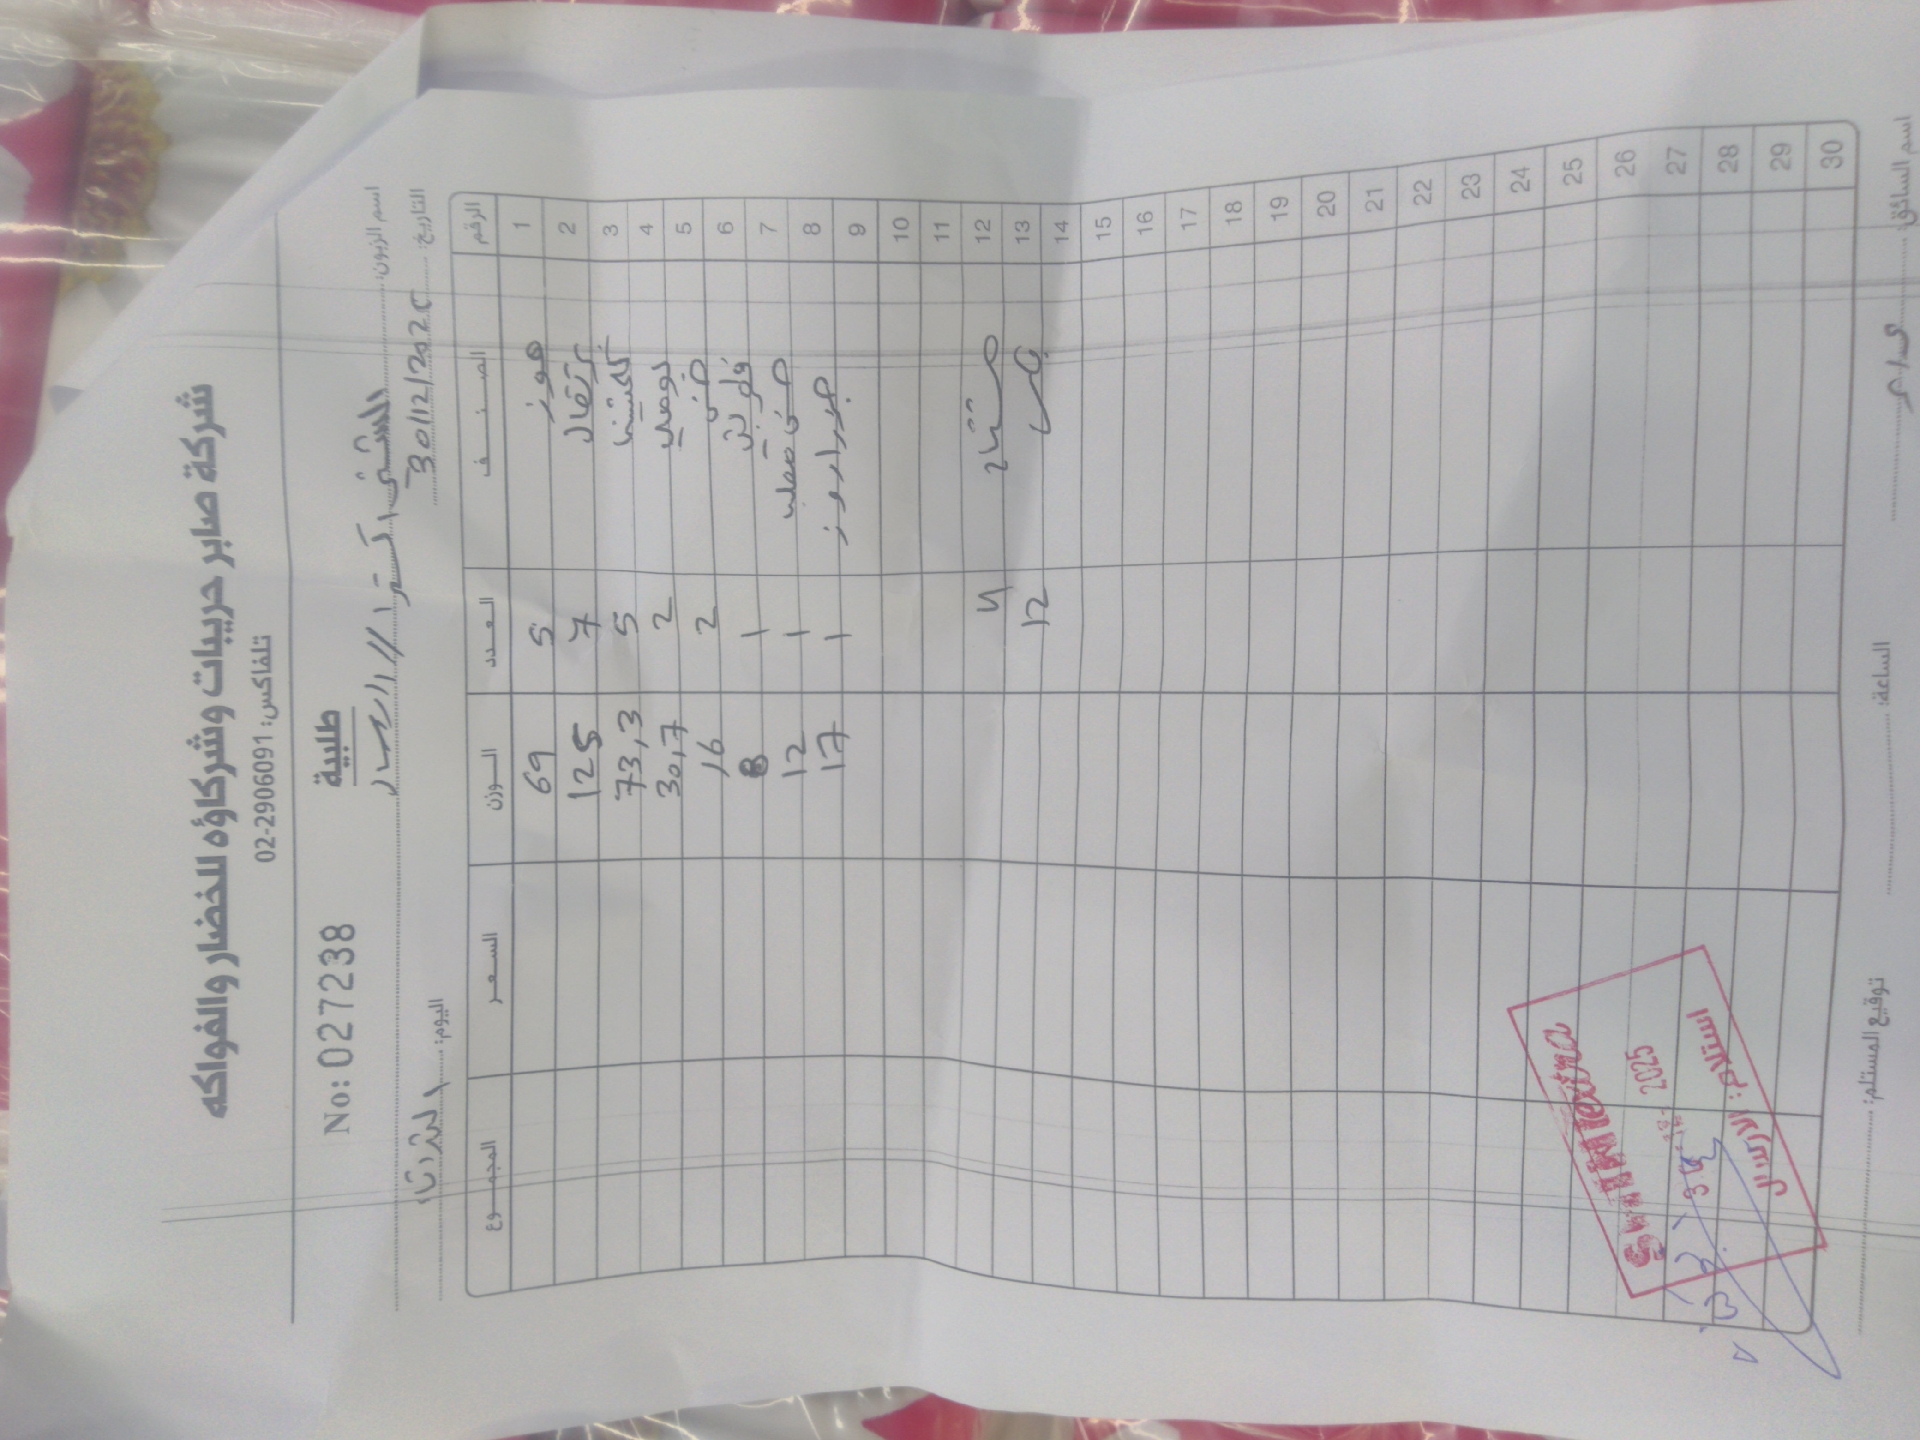 شركة صابر حريبات وشركاؤه للخضار والفواكه
تلفاكس: 02-2906091
طلبية
No: 027238
اسم الزبون: الشني اكسترا
التاريخ: 30/12/2025 اليوم: الثلاثاء
الرقم الصنف العدد الوزن السعر المجموع
1 موز 5 69
2 برتقال 7 125
3 كلمنتينا 5 73,3
4 بوملي 2 30,7
5 2 16
6 1 8
7 1 12
8 1 17
9
10
11
12 4
13 12
14
15
16
17
18
19
20
21
22
23
24
25
26
27
28
29
30
extra
2025
استلام: الارسال
اسم السائق: الساعة: توقيع المستلم: